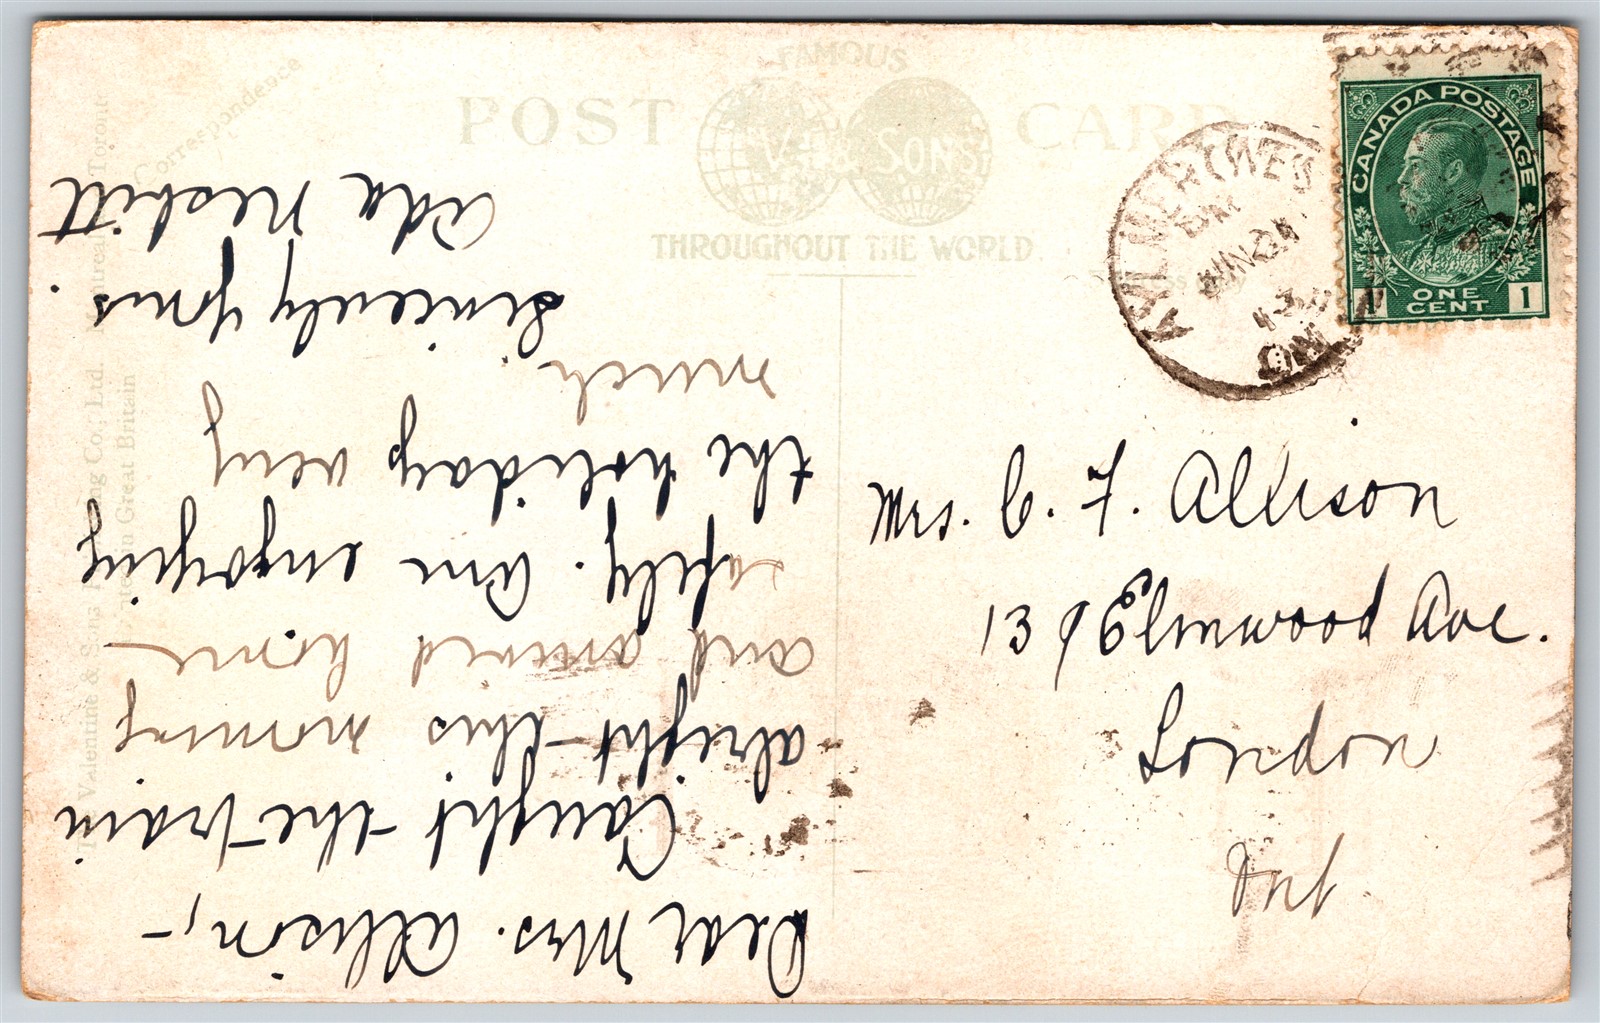 FAMOUS
POST CARD
V. & SONS
THROUGHOUT THE WORLD.
Correspondence
AYLMER (WEST)
PM
24
ONT
CANADA POSTAGE
1 ONE CENT 1
Mrs. C. F. Allison
139 Elmwood Ave.
London
Ont.
Dear Mrs. Allison,-
Caught the train
alright this morning
and arrived home
safely. Am enjoying
the holiday very
much
Sincerely Yours
Ada Nesbitt.
Valentine & Sons Co., Ltd. Montreal Toronto
in Great Britain